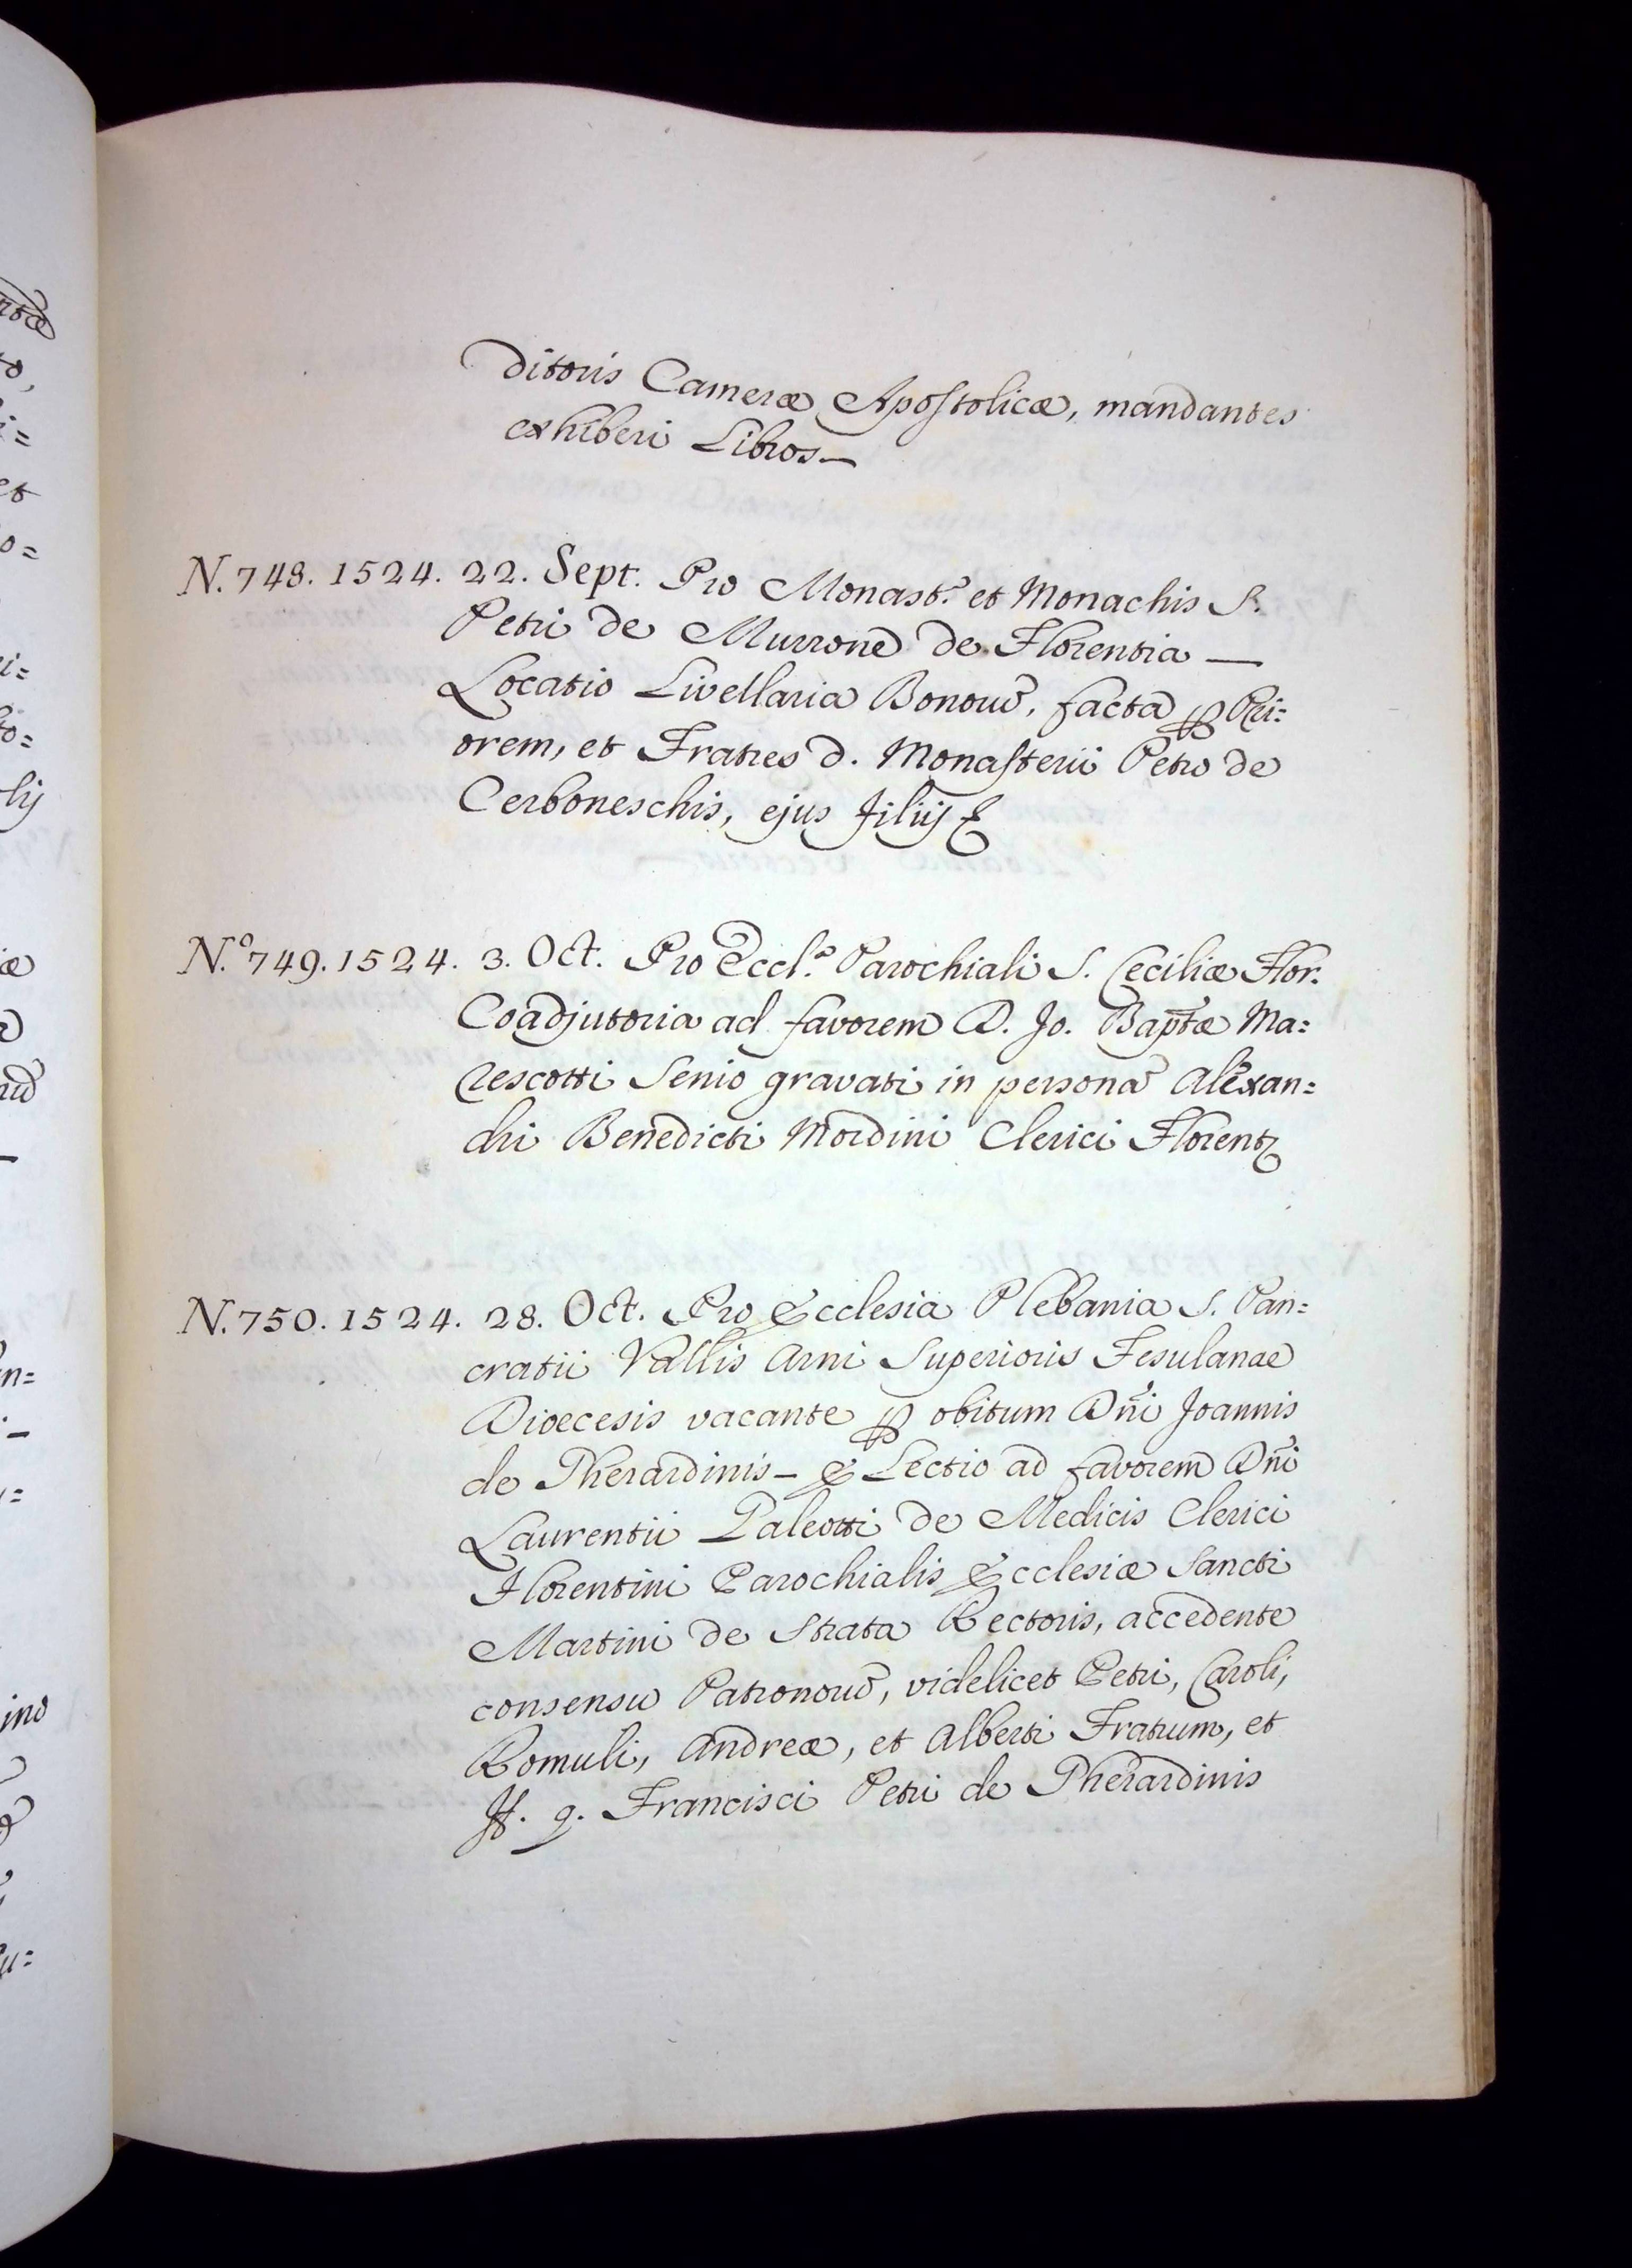 ditoris Cameræ Apostolicæ, mandantes
exhiberi Libros—
N. 748. 1524. 22. Sept. Pro Monast.º et Monachis S.
Petri de Murrone de Florentia —
Locatio Livellaria Bonorũ, facta ꝑ Pri=
orem, et Fratres d. Monasterii Petro de
Cerboneschis, ejus filiij &
N.º 749. 1524. 3. Oct. Pro Eccl.ª Parochiali S. Ceciliæ Flor.
Coadjutoria ad favorem D. Jo. Baptæ Ma=
rescotti Senio gravati in persona Alexan=
dri Benedicti Mordini Clerici Florent
N. 750. 1524. 28. Oct. Pro Ecclesia Plebania S. Pan=
cratii Vallis Arni Superioris Fesulanae
Dioecesis vacante ꝑ obitum Dñi Joannis
de Gherardinis — Electio ad favorem Dñi
Laurentii Galeotti de Medicis Clerici
Florentini Parochialis Ecclesiæ Sancti
Martini de Strata Rectoris, accedente
consensu Patronorũ, videlicet Petri, Caroli,
Romuli, Andreæ, et Alberti Fratrum, et
ff. q. Francisci Petri de Gherardinis